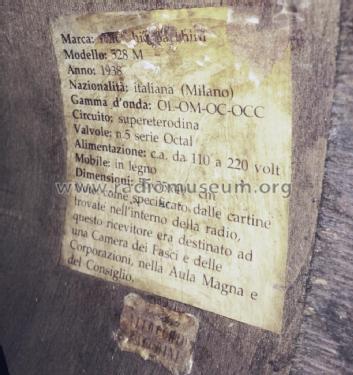 Marca:
Modello: 528 M
Anno: 1938
Nazionalità: italiana (Milano)
Gamma d'onda: OL-OM-OC-OCC
Circuito: supereterodina
Valvole: n.5 serie Octal
Alimentazione: c.a. da 110 a 220 volt
Mobile: in legno
Dimensioni: cm
come specificato dalle cartine
trovate nell'interno della radio,
questo ricevitore era destinato ad
una Camera dei Fasci e delle
Corporazioni, nella Aula Magna e
del Consiglio.
www.radiomuseum.org